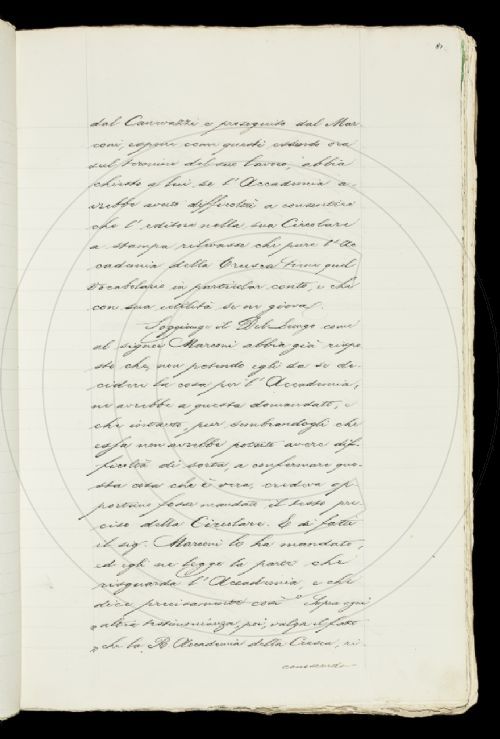 81.
dal Canevazzi e proseguito dal Mar-
coni, espone come questi essendo ora
sul termine del suo lavoro, abbia
chiesto a lui se l'Accademia a-
vrebbe avuto difficoltà a consentire
che l'editore nella sua Circolare
a stampa rilevasse che pure l'Ac-
cademia della Crusca tiene quel
Vocabolario in particolar conto, e che
con sua utilità se ne giova.
Soggiunge il Del Lungo come
al signor Marconi abbia già rispo-
sto che, non potendo egli da se de-
cidere la cosa per l'Accademia,
ne avrebbe a questa domandato, e
che intanto, pur sembrandogli che
essa non avrebbe potuto avere dif-
ficoltà di sorta a confermare que-
sta cosa che è vera, credeva op-
portuno fosse mandato il testo pre-
ciso della Circolare. E di fatti
il sig. Marconi lo ha mandato,
ed egli ne legge la parte che
risguarda l'Accademia e che
dice precisamente così "Sopra ogni
"altra testimonianza, poi, valga il fatto
"che la R. Accademia della Crusca, ri-
conoscendo